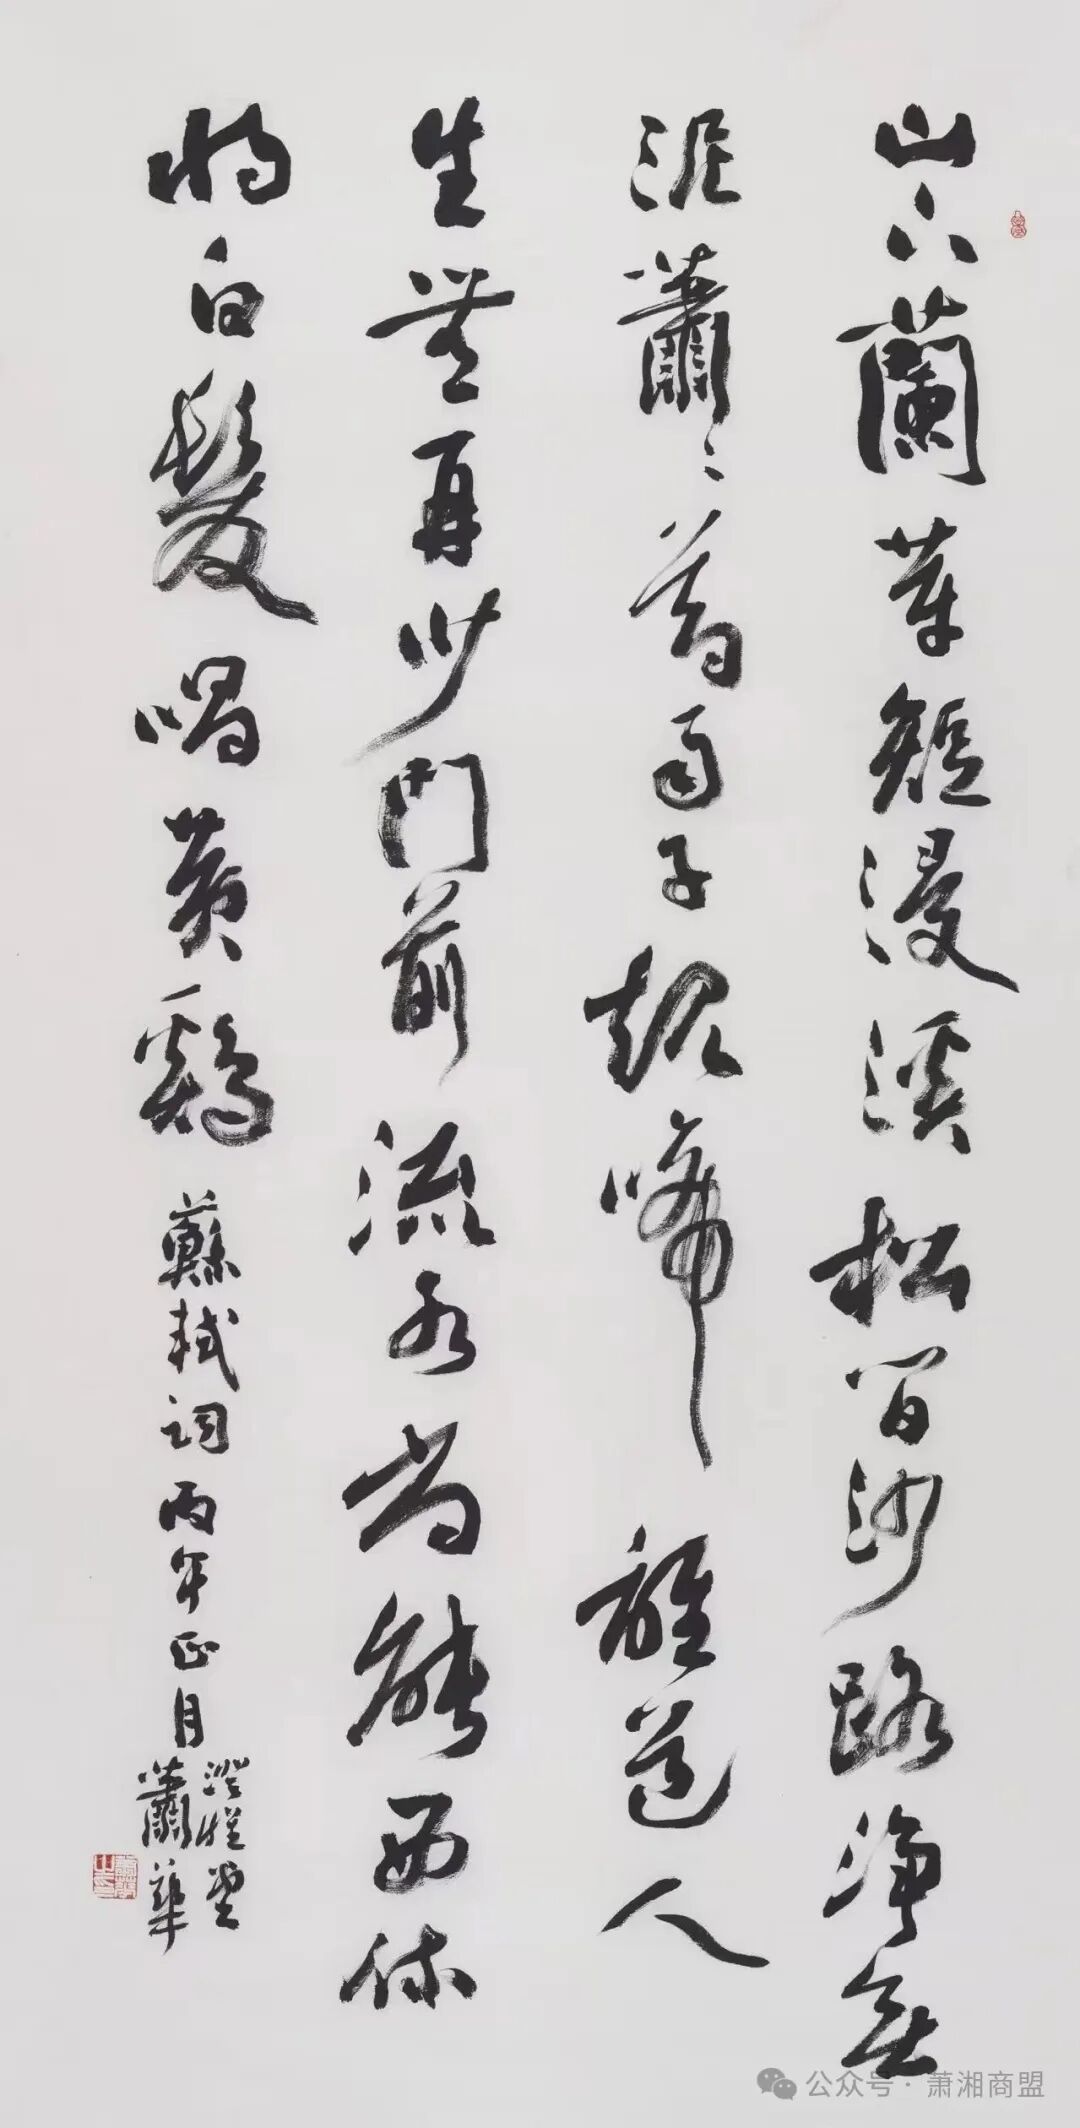 山下蘭芽短浸溪松間沙路淨無
泥蕭々暮雨子規啼誰道人
生無再少門前流水尚能西休
將白髮唱黃鷄
蘇軾詞丙午年正月
澄懷堂
蕭華
公众号·萧湘商盟